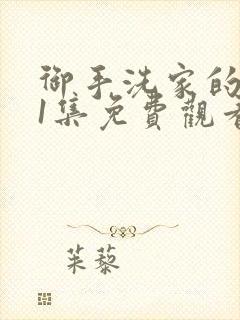 御手洗家的
1集免費觀看
茱藜